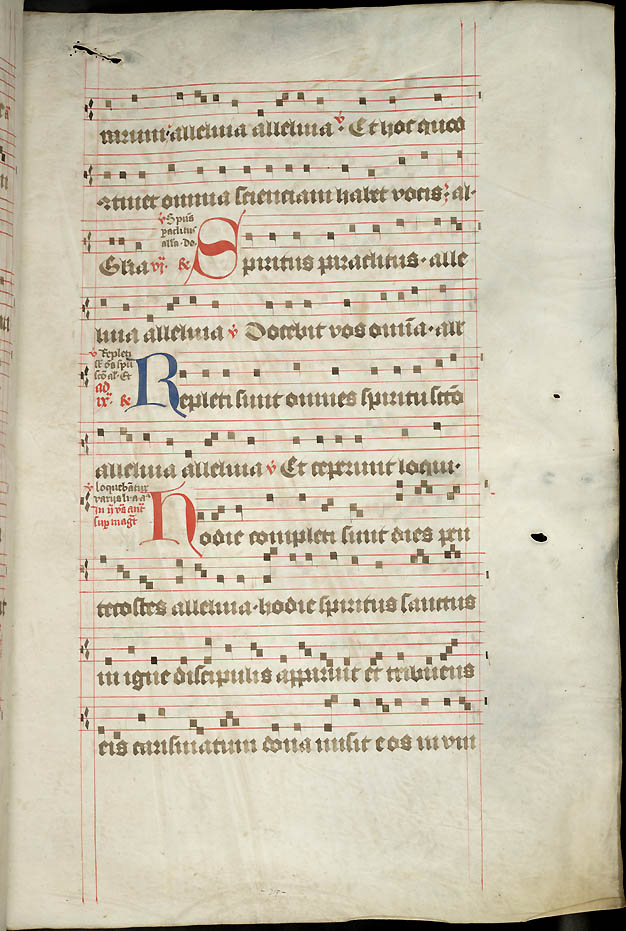 mium alleluia alleluia. v Et hoc quod
continet omnia scienciam habet vocis; al-
v Sp̄us
paclitus
alla. do.
Gloria vj. R̄ Spiritus paraclitus. alle
luia alleluia v Docebit vos om̄ia. alle
v Repleti
st o͞s spū
sc̄o al. Et
ad
ix. R̄ Repleti sunt omnes spiritu sc̄o
alleluia alleluia v Et ceperunt loqui.
v loqueb̄atur
varijs li. a. a.
In ij vēs an̄t
sup̱ magt̄
Hodie completi sunt dies pen
tecostes alleluia. hodie spiritus sanctus
in igne discipulis apparuit et tribuens
eis carismatum dona misit eos in vni